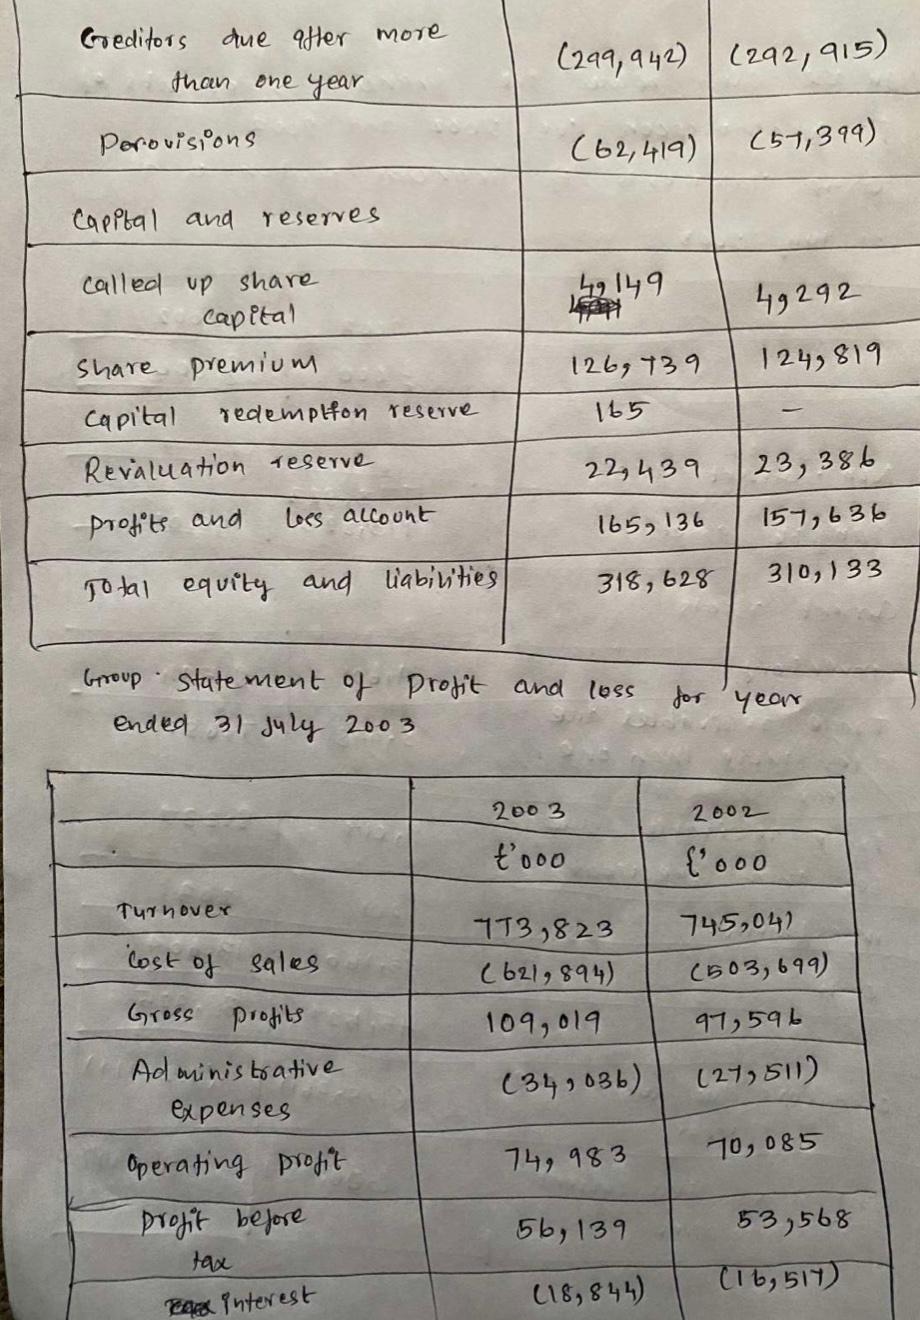 Creditors due after more (299,942) (292,915)
than one year
Perovisions (62,419) (57,399)
Capital and reserves
called up share 4,149 4,292
capital
share premium 126,739 124,819
capital redemption reserve 165 -
Revaluation reserve 22,439 23,386
profits and loss account 165,136 157,636
Total equity and liabilities 318,628 310,133
Group statement of profit and loss for year
ended 31 July 2003
2003 2002
£'000 £'000
Turnover 773,823 745,041
Cost of sales (621,894) (503,699)
Gross profits 109,019 97,596
Administrative (34,036) (27,511)
expenses
Operating profit 74,983 70,085
profit before 56,139 53,568
tax
interest (18,844) (16,517)